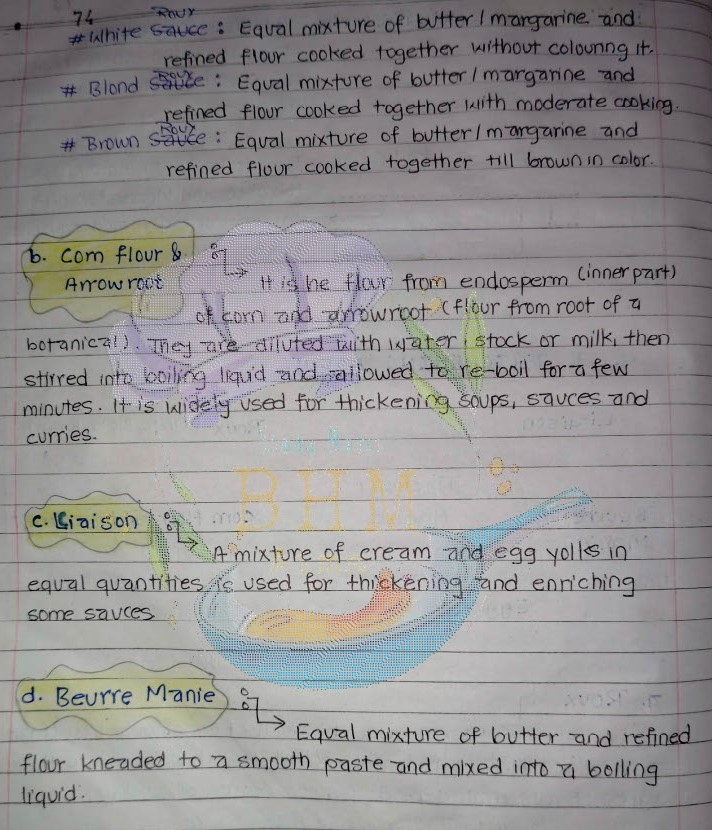 74
Roux
# White Sauce : Equal mixture of butter / margarine and
refined flour cooked together without colouring it.
Roux
# Blond Sauce : Equal mixture of butter / margarine and
refined flour cooked together with moderate cooking.
Roux
# Brown Sauce : Equal mixture of butter / margarine and
refined flour cooked together till brown in color.
b. Corn flour &
Arrowroot
It is he flour from endosperm (inner part)
of corn and arrowroot (flour from root of a
botanical). They are diluted with water, stock or milk, then
stirred into boiling liquid and allowed to re-boil for a few
minutes. It is widely used for thickening soups, sauces and
curries.
BHM
c. Liaison
A mixture of cream and egg yolks in
equal quantities is used for thickening and enriching
some sauces
d. Beurre Manie
Equal mixture of butter and refined
flour kneaded to a smooth paste and mixed into a boiling
liquid.